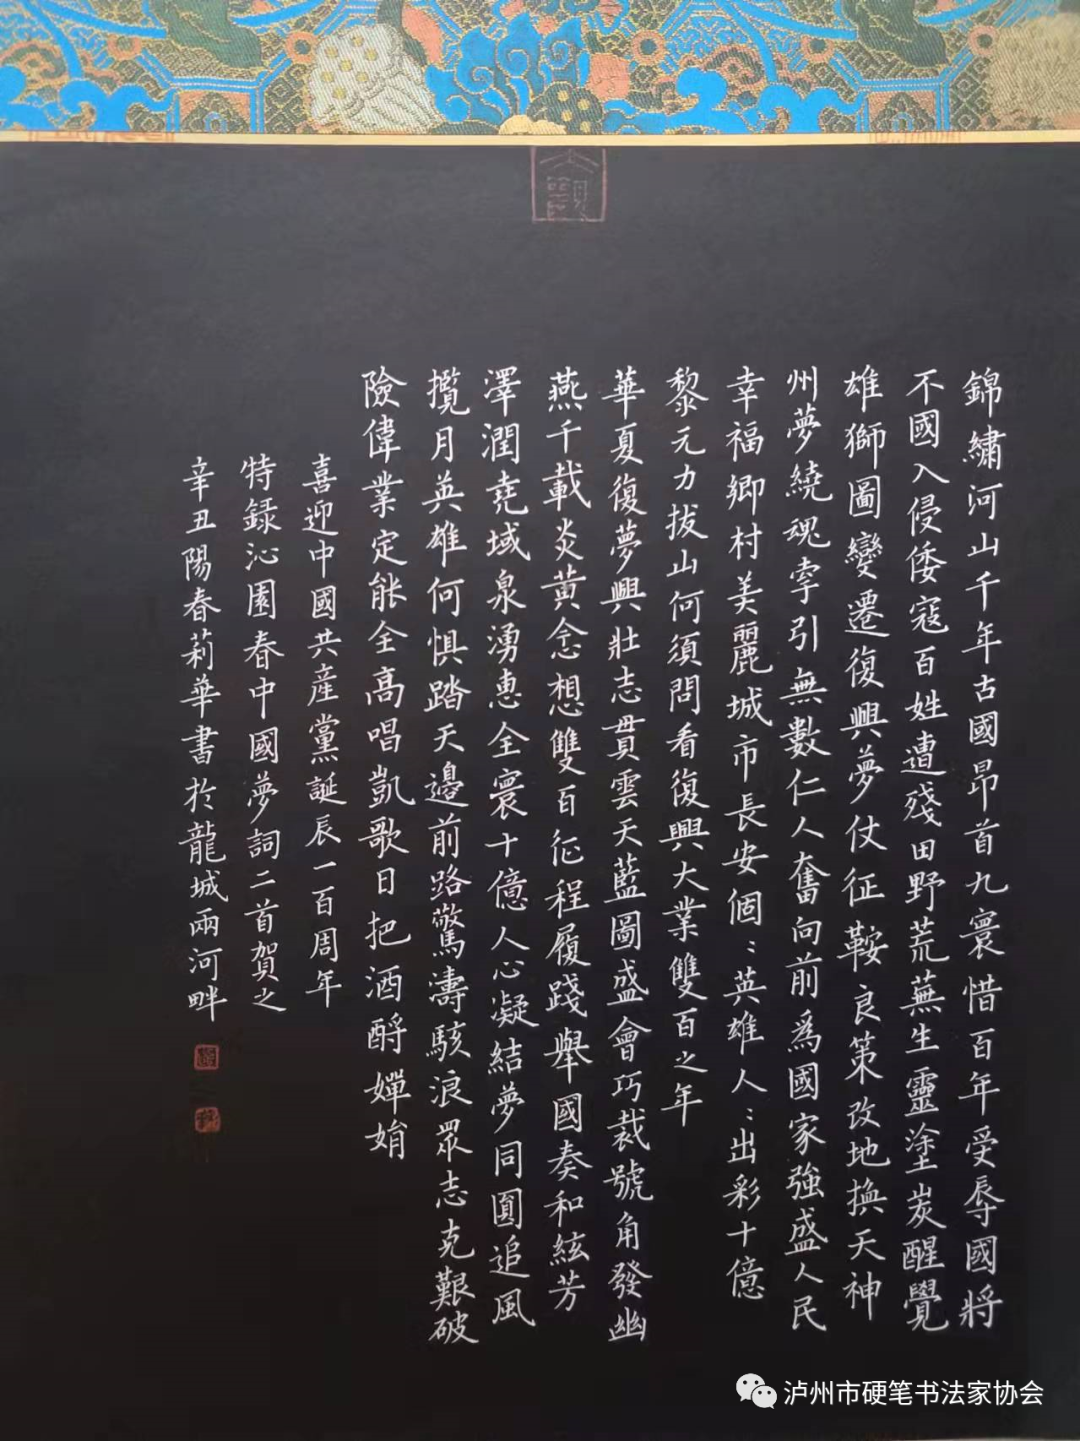 大觀
錦繡河山千年古國昂首九寰惜百年受辱國將
不國入侵倭寇百姓遭殘田野荒蕪生靈塗炭醒覺
雄獅圖變遷復興夢仗征鞍良策改地換天神
州夢繞魂牽引無數仁人奮向前為國家強盛人民
幸福鄉村美麗城市長安個:英雄人:出彩十億
黎元力拔山何須問看復興大業雙百之年
華夏復夢興壯志貫雲天藍圖盛會巧裁號角發幽
燕千載炎黃念想雙百征程履踐舉國奏和絃芳
澤潤堯域泉湧惠全寰十億人心凝結夢同圓追風
攬月英雄何惧踏天邊前路驚濤駭浪眾志克艱破
險偉業定能全高唱凱歌日把酒酹嬋娟
喜迎中國共產黨誕辰一百周年
特録沁園春中國夢詞二首賀之
辛丑陽春莉華書於龍城兩河畔
泸州市硬笔书法家协会